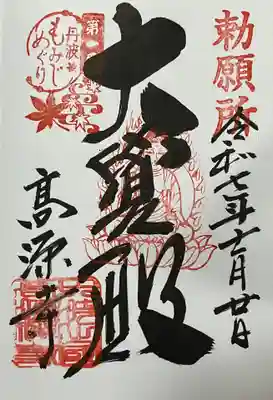 勅願所
令和七年十一月廿日
大覺殿
高源寺
第
丹波
もみじ
めぐり